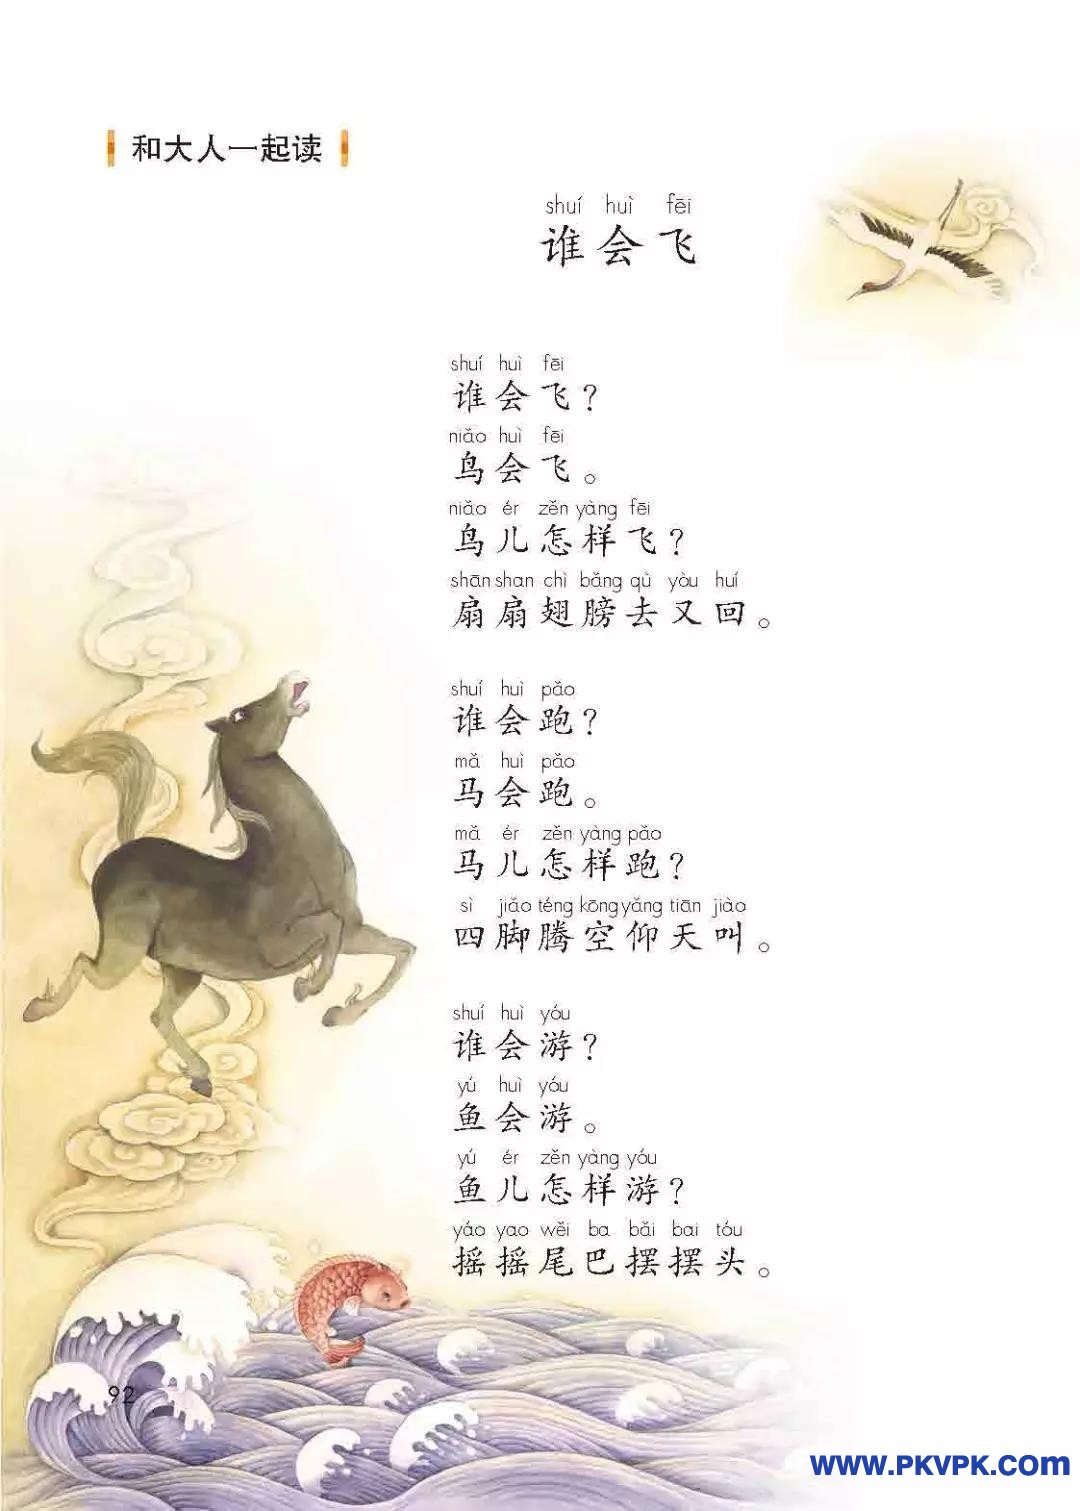 和大人一起读
shuí huì fēi
谁会飞
shuí huì fēi
谁会飞？
niǎo huì fēi
鸟会飞。
niǎo ér zěn yàng fēi
鸟儿怎样飞？
shān shan chì bǎng qù yòu huí
扇扇翅膀去又回。
shuí huì pǎo
谁会跑？
mǎ huì pǎo
马会跑。
mǎ ér zěn yàng pǎo
马儿怎样跑？
sì jiǎo téng kōng yǎng tiān jiào
四脚腾空仰天叫。
shuí huì yóu
谁会游？
yú huì yóu
鱼会游。
yú ér zěn yàng yóu
鱼儿怎样游？
yáo yao wěi ba bǎi bai tóu
摇摇尾巴摆摆头。
92
www.PKVPK.com